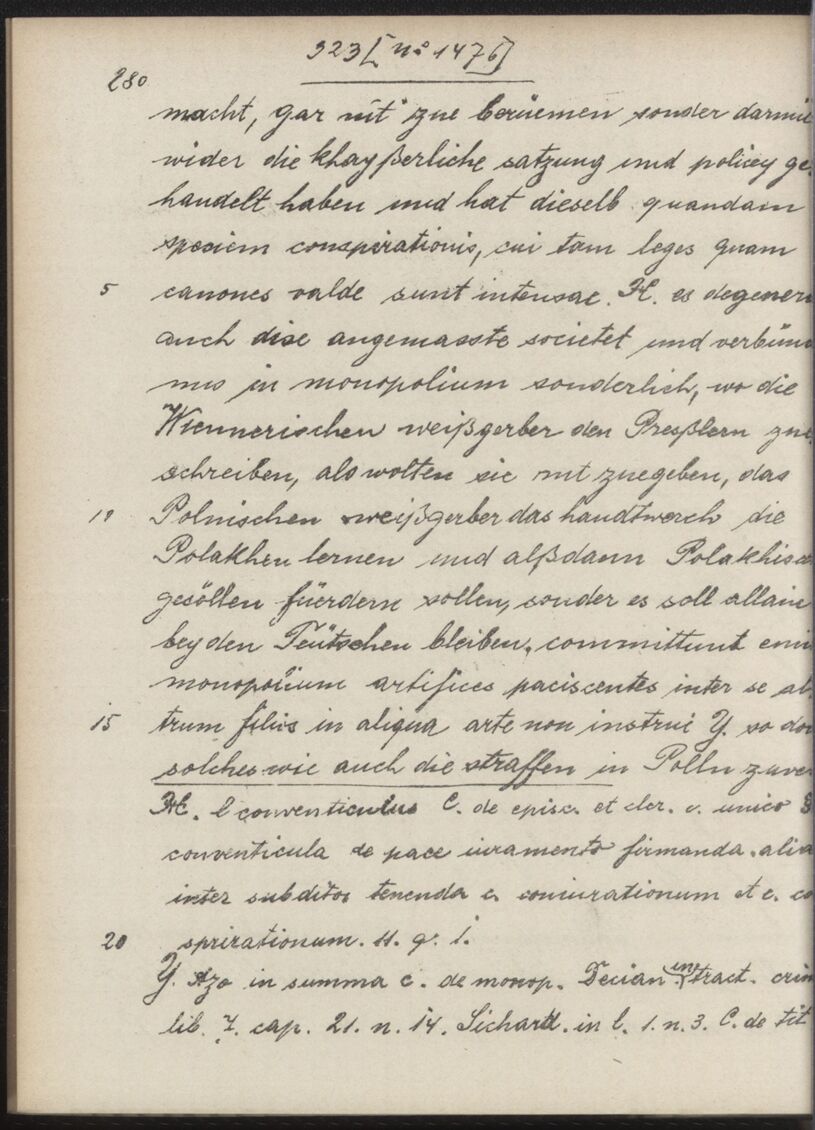 323 [No 1476]
280
macht, gar nit zue berüemen sonder darmit
wider die khayßerliche satzung und policey ge-
handelt haben und hat dieselb quandam
speciem conspirationis, cui tam leges quam
5 canones valde sunt intensae. H. es degener
auch dise angemasste societet und verbün
nus in monopolium sonderlich, wo die
Wiennerischen weißgerber den Preßlern zue
schreiben, als wolten sie nit zuegeben, das
10 Polnischen weißgerber das handtwerch die
Polakhen lernen und alßdann Polakhisch
gesöllen füerdern sollen, sonder es soll allain
bey den Teütschen bleiben, committunt eni
monopolium artifices paciscentes inter se al-
15 trum filios in aliqua arte non instrui Y. so do
solches wie auch die straffen in Polln zuver
H. l conventiculus C. de episc. et cler. c. unico
conventicula de pace iuramento firmanda. alia
inter subditos tenenda c. coniurationum et c. co
20 sprirationum. 11. q. 1.
Y. Azo in summa c. de monop. Decian. in tract. crim
lib. 7. cap. 21. n. 14. Sichard. in l. 1. n. 3. C. de tit